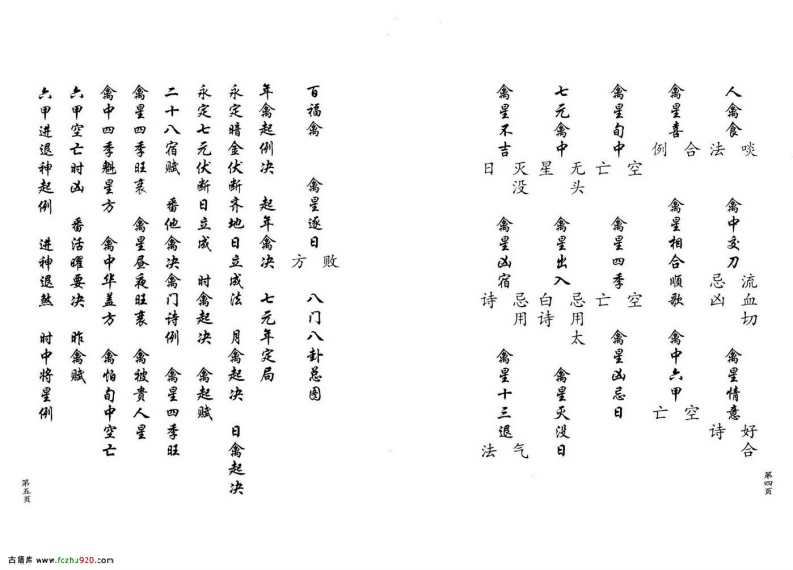 人禽食啖法 禽中交刀流血切忌凶 禽星情意好合诗
禽星喜合例 禽星相合顺歌 禽中六甲空亡
禽星旬中空亡 禽星四季空亡 禽星凶忌日
七元禽中无头星 禽星出入忌用太白诗 禽星灭没日
禽星不吉灭没日 禽星凶宿忌用诗 禽星十三退气法
第四页
百福禽 禽星逐日败方 八门八卦总图
年禽起例决 起年禽决 七元年定局
永定暗金伏断齐地日立成法 月禽起决 日禽起决
永定七元伏断日立成 时禽起决 禽起赋
二十八宿赋 番他禽决禽门诗例 禽星四季旺
禽星四季旺衰 禽星昼夜旺衰 禽被貴人星
禽中四季魁星方 禽中华盖方 禽怕旬中空亡
六甲空亡时凶 番活曜要决 昨禽赋
六甲进退神起例 进神退煞 时中将星例
第五页
古籍库 www.fczhu920.com